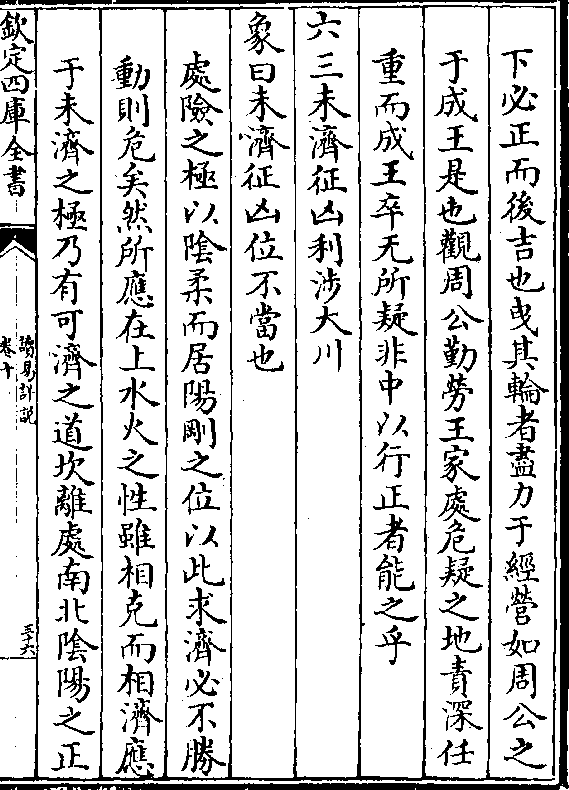 下必正而後吉也曳其輪者盡力于經營如周公之
于成王是也觀周公勤勞王家處危疑之地責深任
重而成王卒无所疑非中以行正者能之乎
六三未濟征凶利涉大川
象曰未濟征凶位不當也
處險之極以陰柔而居陽剛之位以此求濟必不勝
動則危矣然所應在上水火之性雖相克而相濟應
于未濟之極乃有可濟之道坎離處南北陰陽之正
欽定四庫全書
讀易詳說
卷十
三十六